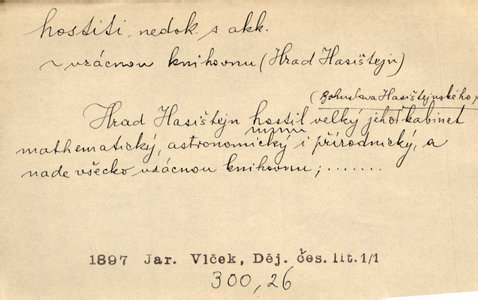 hostiti, nedok. s akk.
~ vzácnou knihovnu (Hrad Hasištejn)
(Bohuslava Hasištejnského)
Hrad Hasištejn hostil velký jeho kabinet
mathematický, astronomický i přírodnický, a
nade všecko vzácnou knihovnu; .......
1897 Jar. Vlček, Děj. čes. lit. 1/1
300, 26